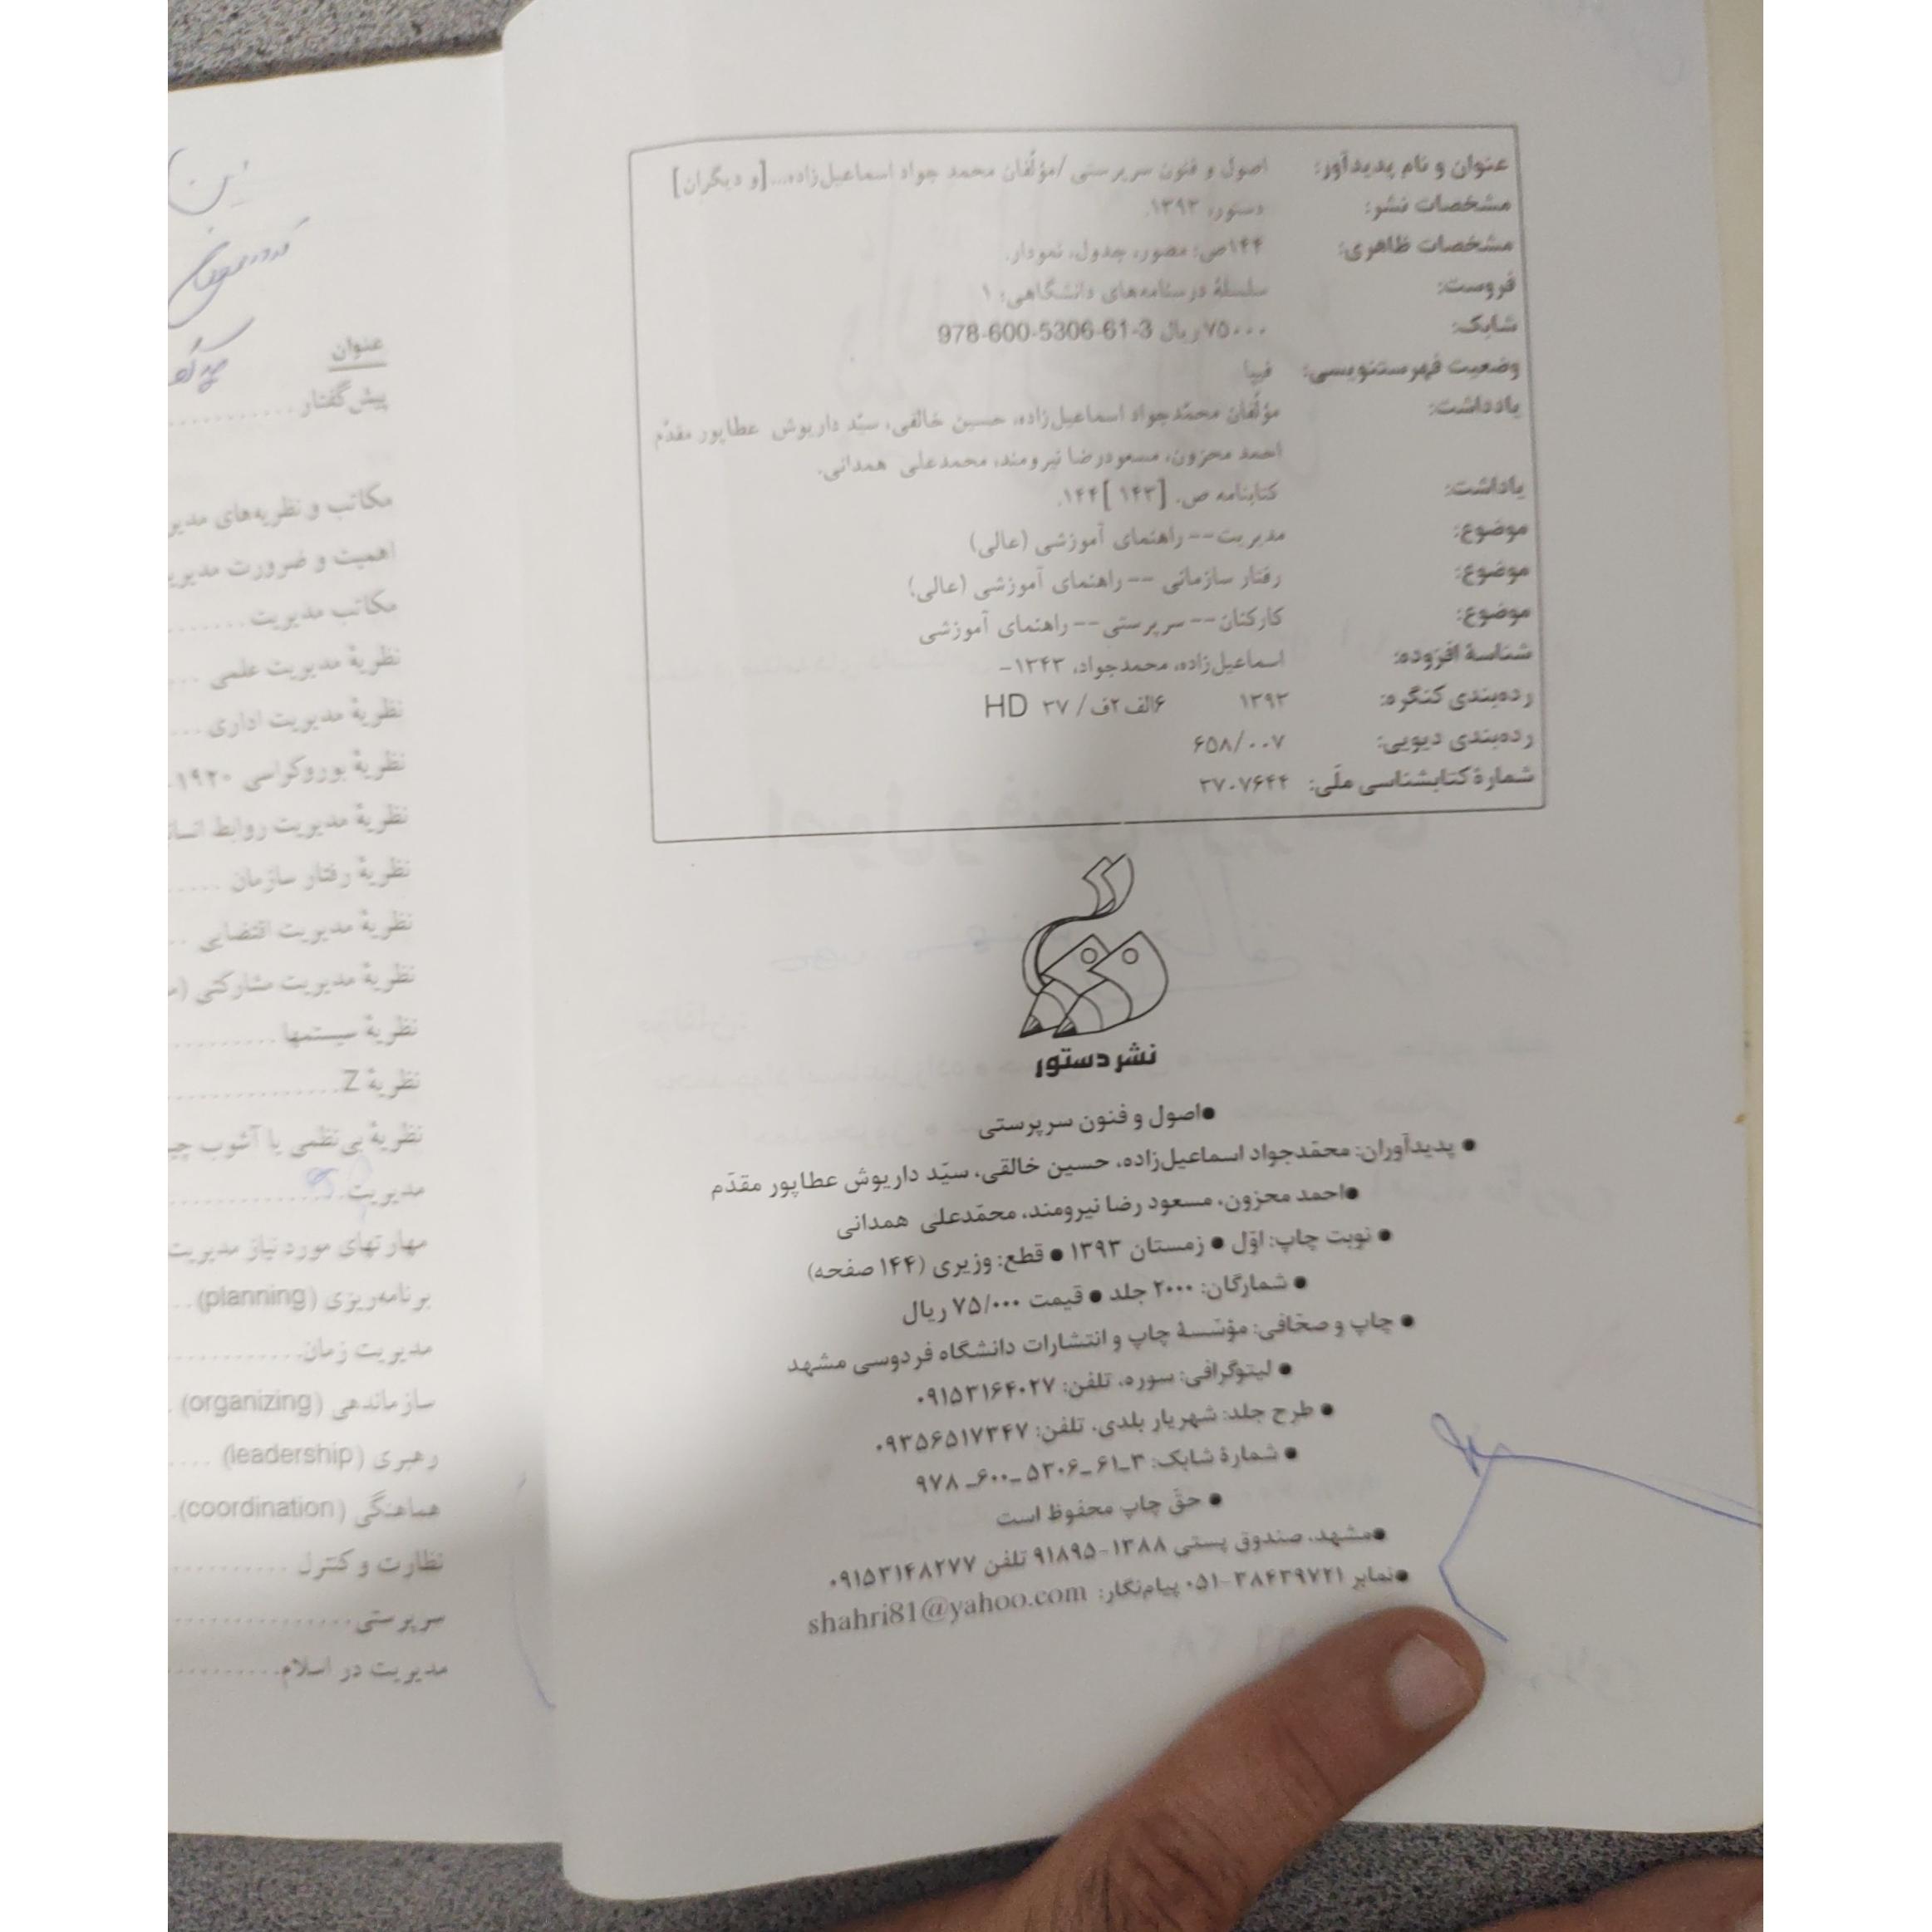 عنوان و نام پدیدآور: اصول و فنون سرپرستی /مؤلّفان محمد جواد اسماعیل‌زاده...[و دیگران]
مشخصات نشر: دستور، ۱۳۹۳.
مشخصات ظاهری: ۱۴۴ص؛ مصور، جدول، نمودار.
فروست: سلسلۀ درسنامه‌های دانشگاهی؛ ۱
شابک: ۷۵۰۰۰ریال 3-61-5306-600-978
وضعیت فهرستنویسی: فیپا
یادداشت: مؤلّفان محمّدجواد اسماعیل‌زاده، حسین خالقی، سیّد داریوش عطاپور مقدّم
احمد محزون، مسعودرضا نیرومند، محمدعلی همدانی.
یاداشت: کتابنامه ص. [۱۴۳ ]۱۴۴.
موضوع: مدیریت-- راهنمای آموزشی (عالی)
موضوع: رفتار سازمانی -- راهنمای آموزشی (عالی)
موضوع: کارکنان-- سرپرستی-- راهنمای آموزشی
شناسۀ افزوده: اسماعیل‌زاده، محمدجواد، ۱۳۴۳-
رده‌بندی کنگره: ۱۳۹۳ ۶الف۲ف/ ۳۷ HD
رده‌بندی دیویی: ۶۵۸/۰۰۷
شمارۀ کتابشناسی ملّی: ۳۷۰۷۶۴۴
نشر دستور
●اصول و فنون سرپرستی
● پدیدآوران: محمّدجواد اسماعیل‌زاده، حسین خالقی، سیّد داریوش عطاپور مقدّم
●احمد محزون، مسعود رضا نیرومند، محمّدعلی همدانی
● نوبت چاپ: اوّل ● زمستان ۱۳۹۳ ● قطع: وزیری (۱۴۴ صفحه)
● شمارگان: ۲۰۰۰ جلد ● قیمت ۷۵/۰۰۰ ریال
● چاپ و صحّافی: مؤسّسۀ چاپ و انتشارات دانشگاه فردوسی مشهد
● لیتوگرافی: سوره، تلفن: ۰۹۱۵۳۱۶۴۰۲۷
● طرح جلد: شهریار بلدی، تلفن: ۰۹۳۵۶۵۱۷۳۴۷
● شمارۀ شابک: ۳ـ۶۱ـ۵۳۰۶ـ۶۰۰ـ۹۷۸
● حقّ چاپ محفوظ است
●مشهد، صندوق پستی ۱۳۸۸-۹۱۸۹۵ تلفن ۰۹۱۵۳۱۴۸۲۷۷
●نمابر ۳۸۴۳۹۷۲۱-۰۵۱ پیام‌نگار: shahri81@yahoo.com
عنوان
پیش‌گفتار
مکاتب و نظریه‌های مدیر
اهمیت و ضرورت مدیری
مکاتب مدیریت
نظریۀ مدیریت علمی
نظریۀ مدیریت اداری
نظریۀ بوروکراسی ۱۹۲۰
نظریۀ مدیریت روابط انسا
نظریۀ رفتار سازمان
نظریۀ مدیریت اقتضایی
نظریۀ مدیریت مشارکتی (م
نظریۀ سیستمها
نظریۀ Z
نظریۀ بی‌نظمی یا آشوب چی
مدیریت
مهارتهای مورد نیاز مدیریت
برنامه‌ریزی (planning)
مدیریت زمان
سازماندهی (organizing)
رهبری (leadership)
هماهنگی (coordination)
نظارت و کنترل
سرپرستی
مدیریت در اسلام